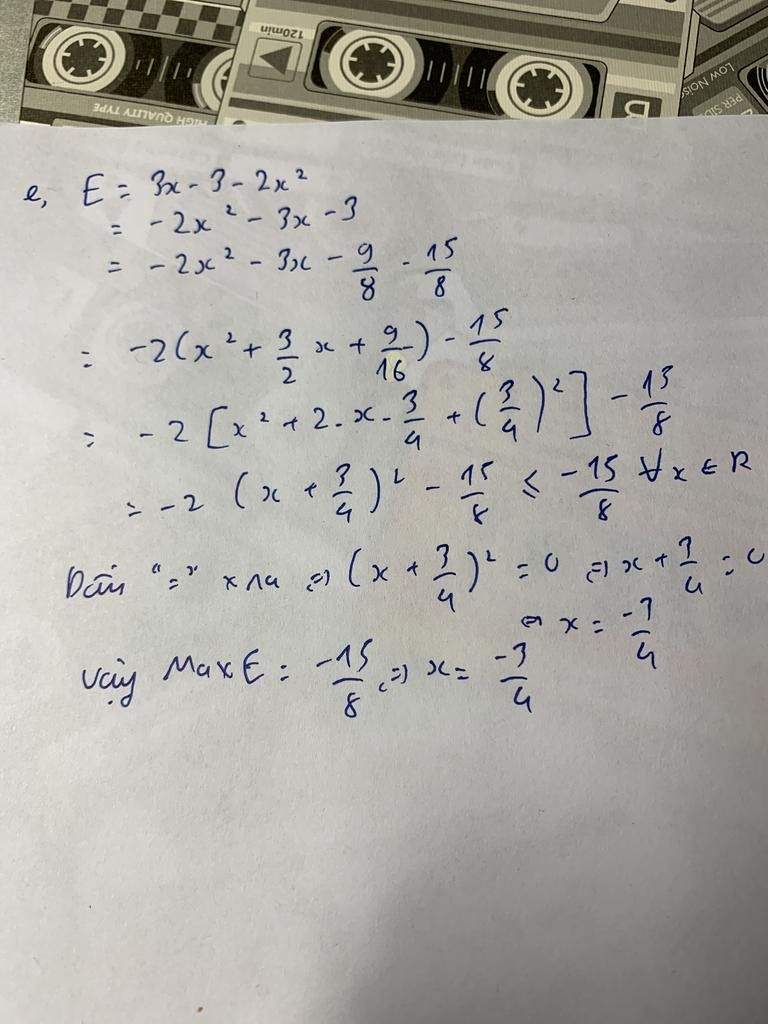 120min
HIGH QUALITY TYPE
B
LOW NOIS
PER SID
e, E = 3x - 3 - 2x²
= -2x² - 3x - 3
= -2x² - 3x - 9/8 - 15/8
= -2(x² + 3/2 x + 9/16) - 15/8
= -2 [x² + 2.x.3/4 + (3/4)²] - 15/8
= -2 (x + 3/4)² - 15/8 ≤ -15/8 ∀x ∈ R
Dấu "=" xra ⇔ (x + 3/4)² = 0 ⇔ x + 3/4 = 0
⇔ x = -3/4
Vậy Max E = -15/8 ⇔ x = -3/4